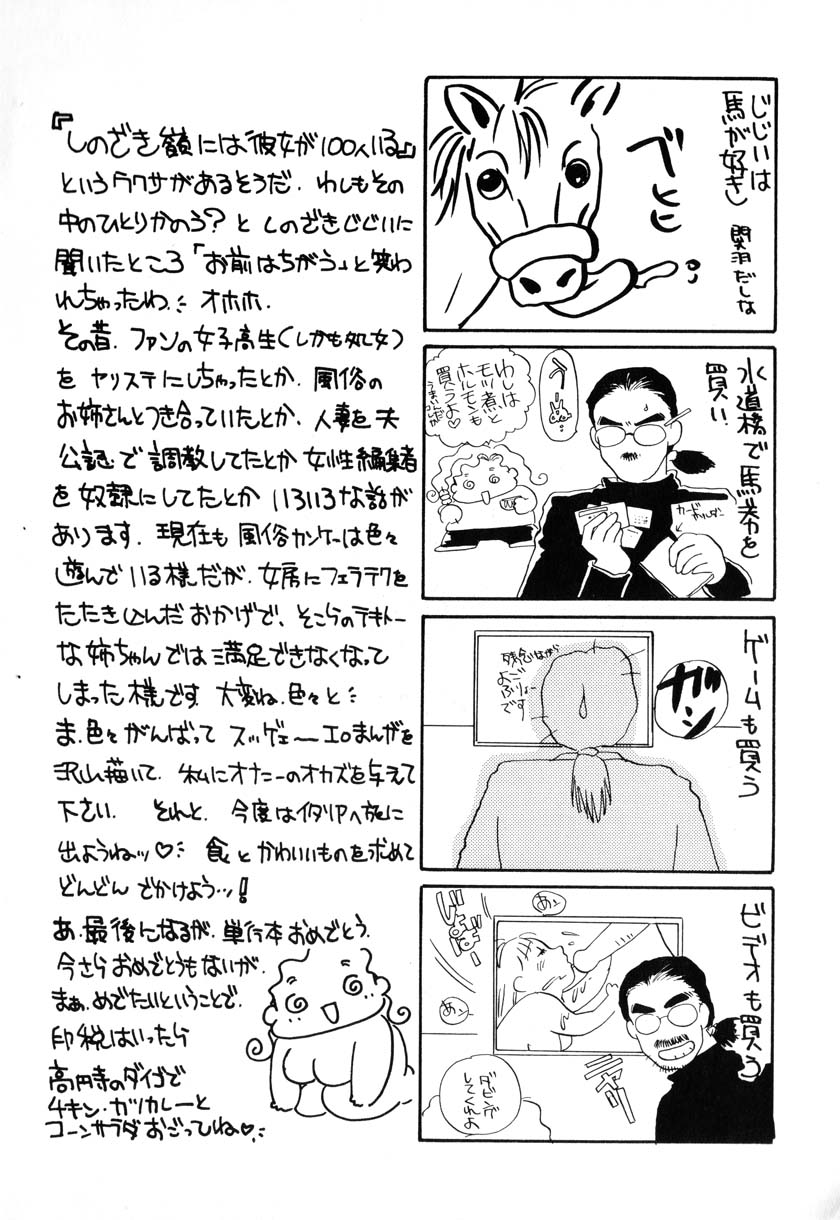 じじいは
馬が好き
関羽だしな
べヒヒ
水道橋で馬券を
買い
カードホルダー
わしは
モツ煮と
ホルモンも
買うよ♡
うまいんだな
ゲームも買う
ガン
残念ながら
よご
ふりょー
です
ビデオも買う
あっ
じゅぽ
あっ
ニヤリ
ダビング
してくれよ
『しのざき嶺には彼女が100人いる』
というウワサがあるそうだ。わしもその
中のひとりかのう？と しのざきじじいに
聞いたところ「お前はちがう」と笑わ
れちゃったわ… オホホ.
その昔. ファンの女子高生(しかも処女)
を ヤリステにしちゃったとか. 風俗の
お姉さんとつき合っていたとか. 人妻を夫
公認で調教してたとか 女性編集者
を奴隷にしてたとか いろいろな話が
あります. 現在も 風俗カンケーは色々
遊んでいる様だが. 女房にフェラテクを
たたき込んだおかげで、そこらのテキトー
な姉ちゃんでは満足できなくなって
しまった様です. 大変ね. 色々と…
ま. 色々がんばって スッゲェ〜エロまんがを
沢山描いて. 私にオナニーのオカズを与えて
下さい. それと. 今度はイタリアへ旅に
出ようねッ♡… 食とかわいいものを求めて
どんどん でかけよう…!
あ. 最後になるが. 単行本おめでとう.
今さらおめでとうもないが.
まぁ. めでたいということで.
印税はいったら
高円寺のダイゴで
チキン・カツカレーと
コーンサラダおごってね♡…